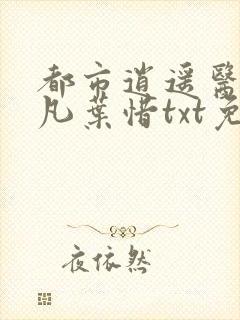 都市逍遥醫
凡葉惜txt免
夜依然